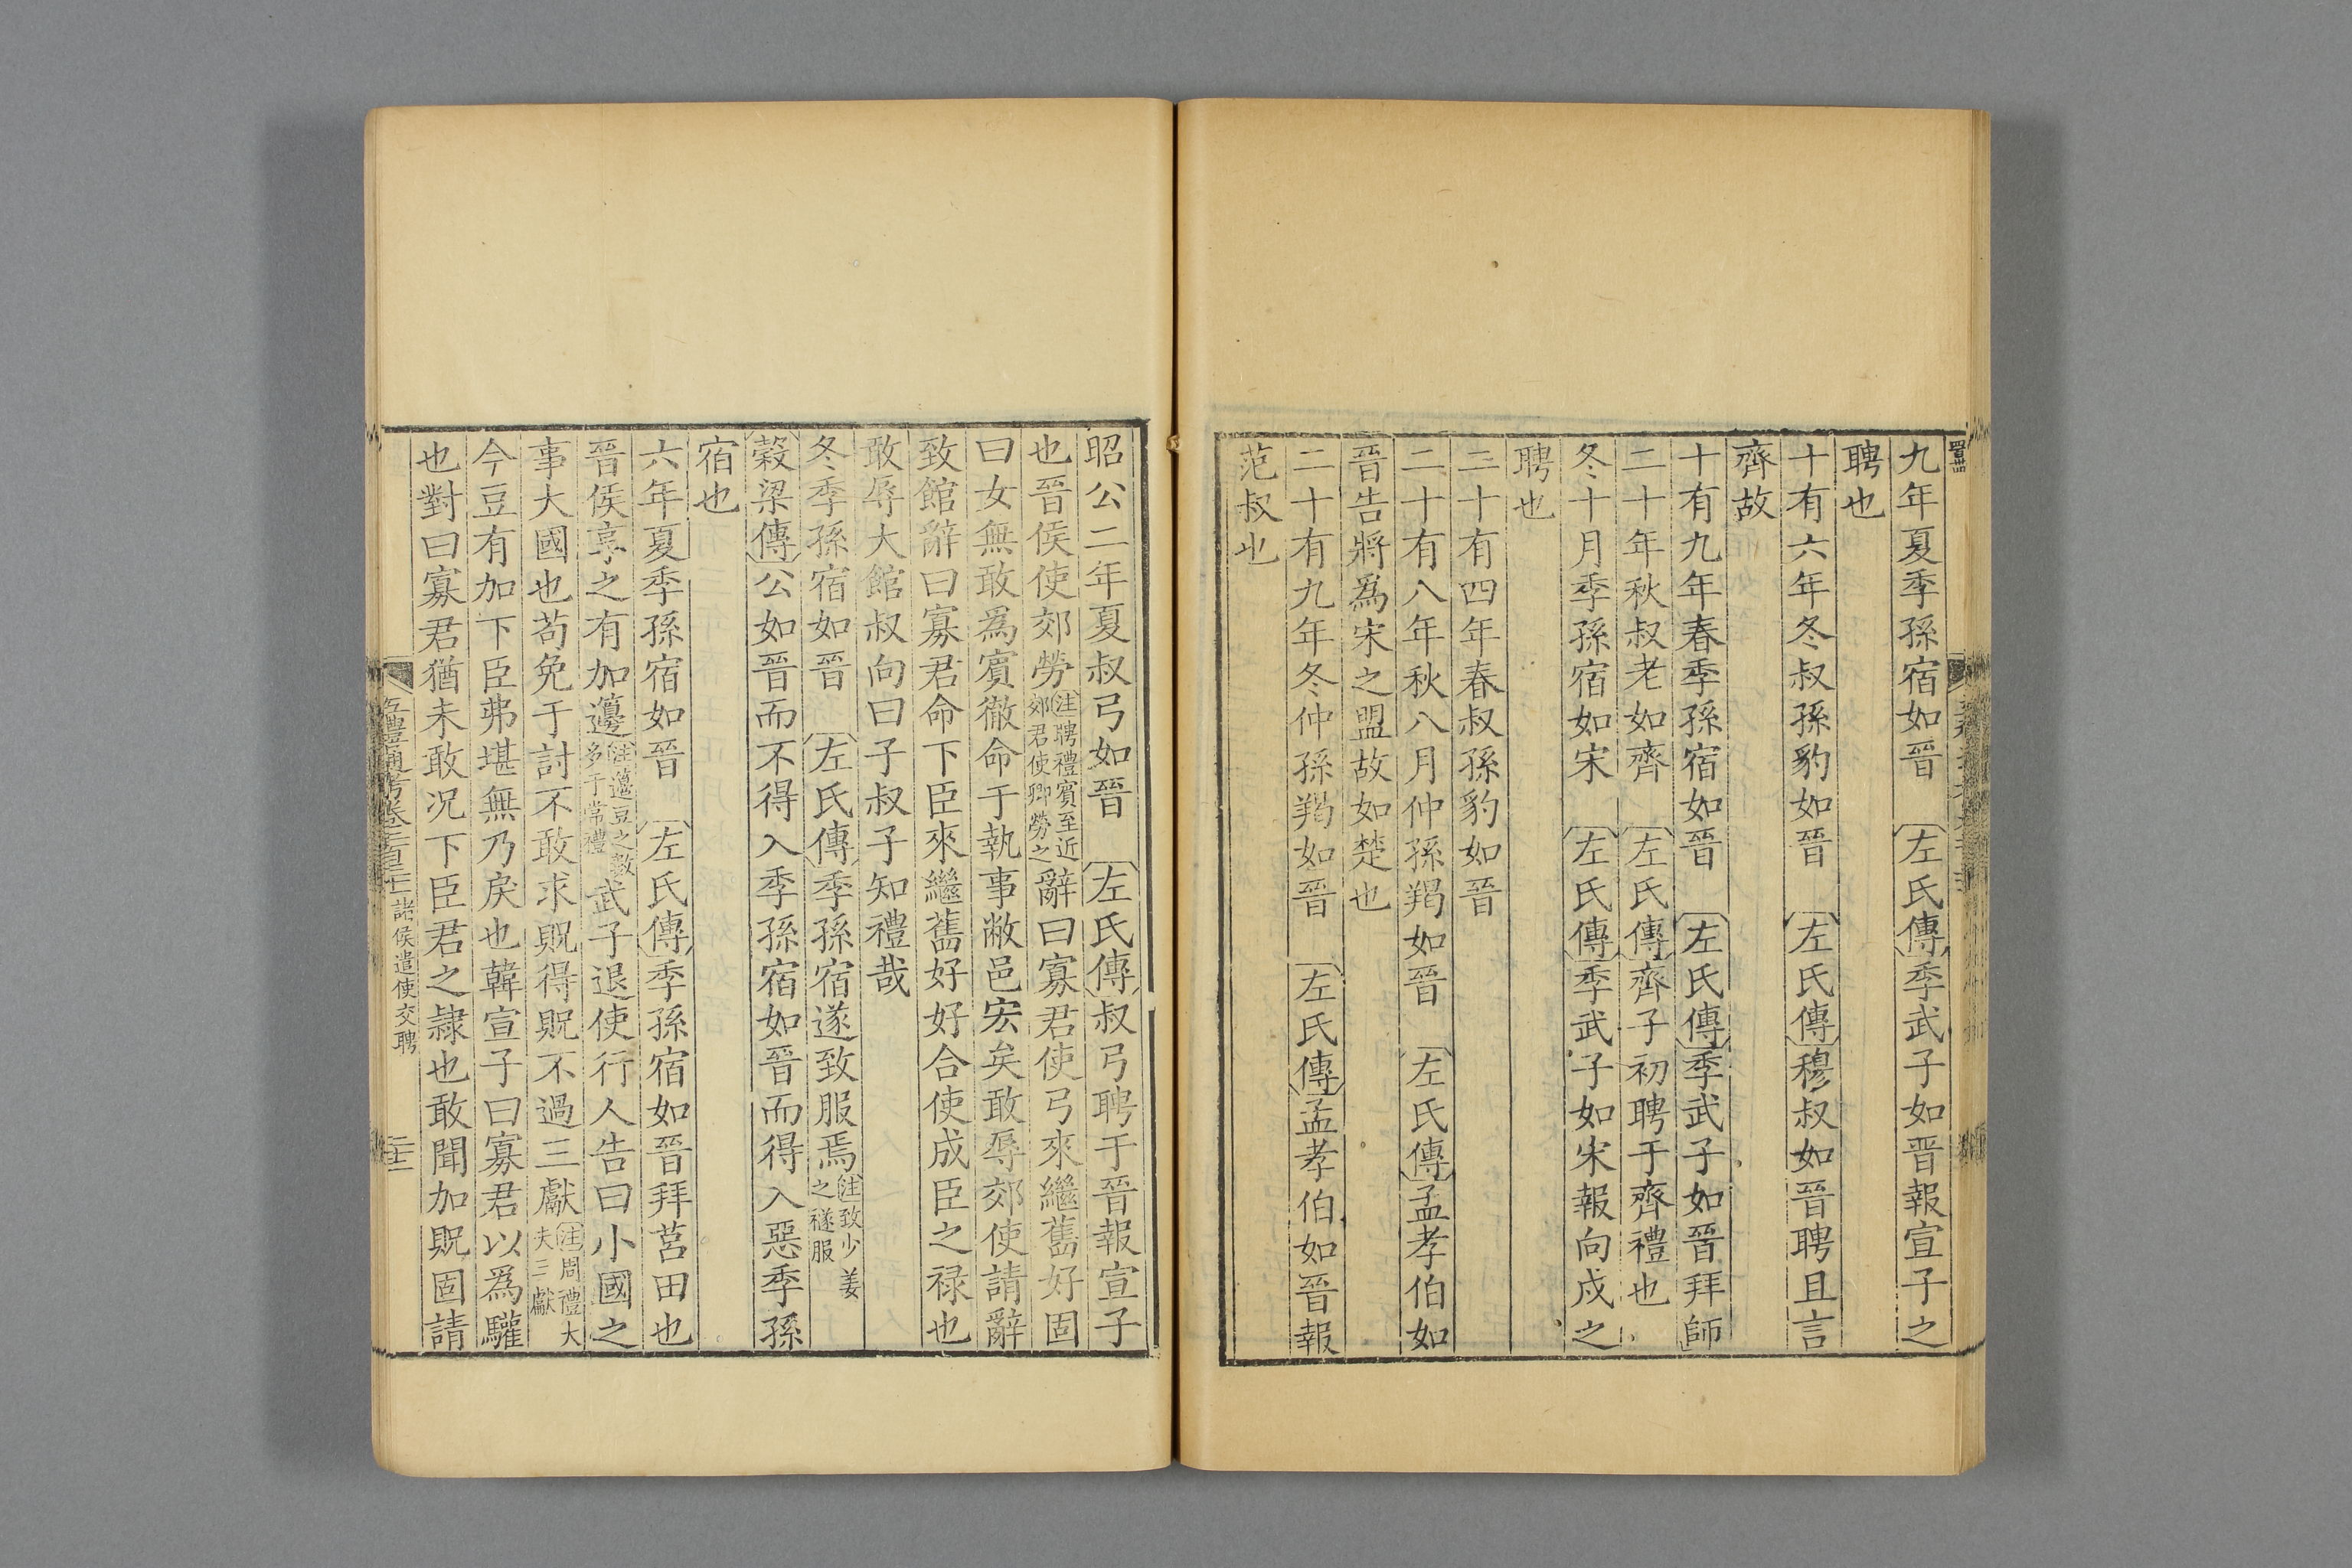 九年夏季孫宿如晉　左氏傳季武子如晉報宣子之
聘也
十有六年冬叔孫豹如晉　左氏傳穆叔如晉聘且言
齊故
十有九年春季孫宿如晉　左氏傳季武子如晉拜師
二十年秋叔老如齊　左氏傳齊子初聘于齊禮也
冬十月季孫宿如宋　左氏傳季武子如宋報向戍之
聘也
二十有四年春叔孫豹如晉
二十有八年秋八月仲孫羯如晉　左氏傳孟孝伯如
晉告將爲宋之盟故如楚也
二十有九年冬仲孫羯如晉　左氏傳孟孝伯如晉報
范叔也
昭公二年夏叔弓如晉　左氏傳叔弓聘于晉報宣子
也晉侯使郊勞注聘禮賓至近郊君使卿勞之辭曰寡君使弓來繼舊好固
曰女無敢爲賓徹命于執事敝邑宏矣敢辱郊使請辭
致館辭曰寡君命下臣來繼舊好好合使成臣之禄也
敢辱大館叔向曰子叔子知禮哉
冬季孫宿如晉　左氏傳季孫宿遂致服焉注致少姜之襚服
穀梁傳公如晉而不得入季孫宿如晉而得入惡季孫
宿也
六年夏季孫宿如晉　左氏傳季孫宿如晉拜莒田也
晉侯享之有加籩注籩豆之數多于常禮武子退使行人告曰小國之
事大國也苟免于討不敢求貺得貺不過三獻注周禮大夫三獻
今豆有加下臣弗堪無乃戾也韓宣子曰寡君以爲驩
也對曰寡君猶未敢况下臣君之隷也敢聞加貺固請
五禮通考卷二百三十二 諸侯遣使交聘 二十二